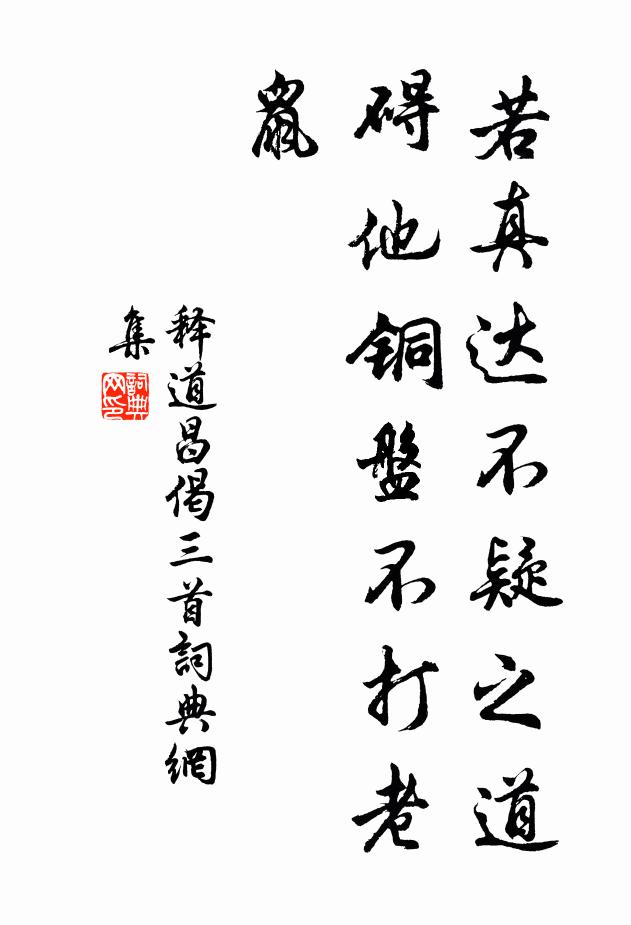 若真达不疑之道
碍他铜盤不打老
鼠
释道昌偈三首詞典網
集
詞典
网印